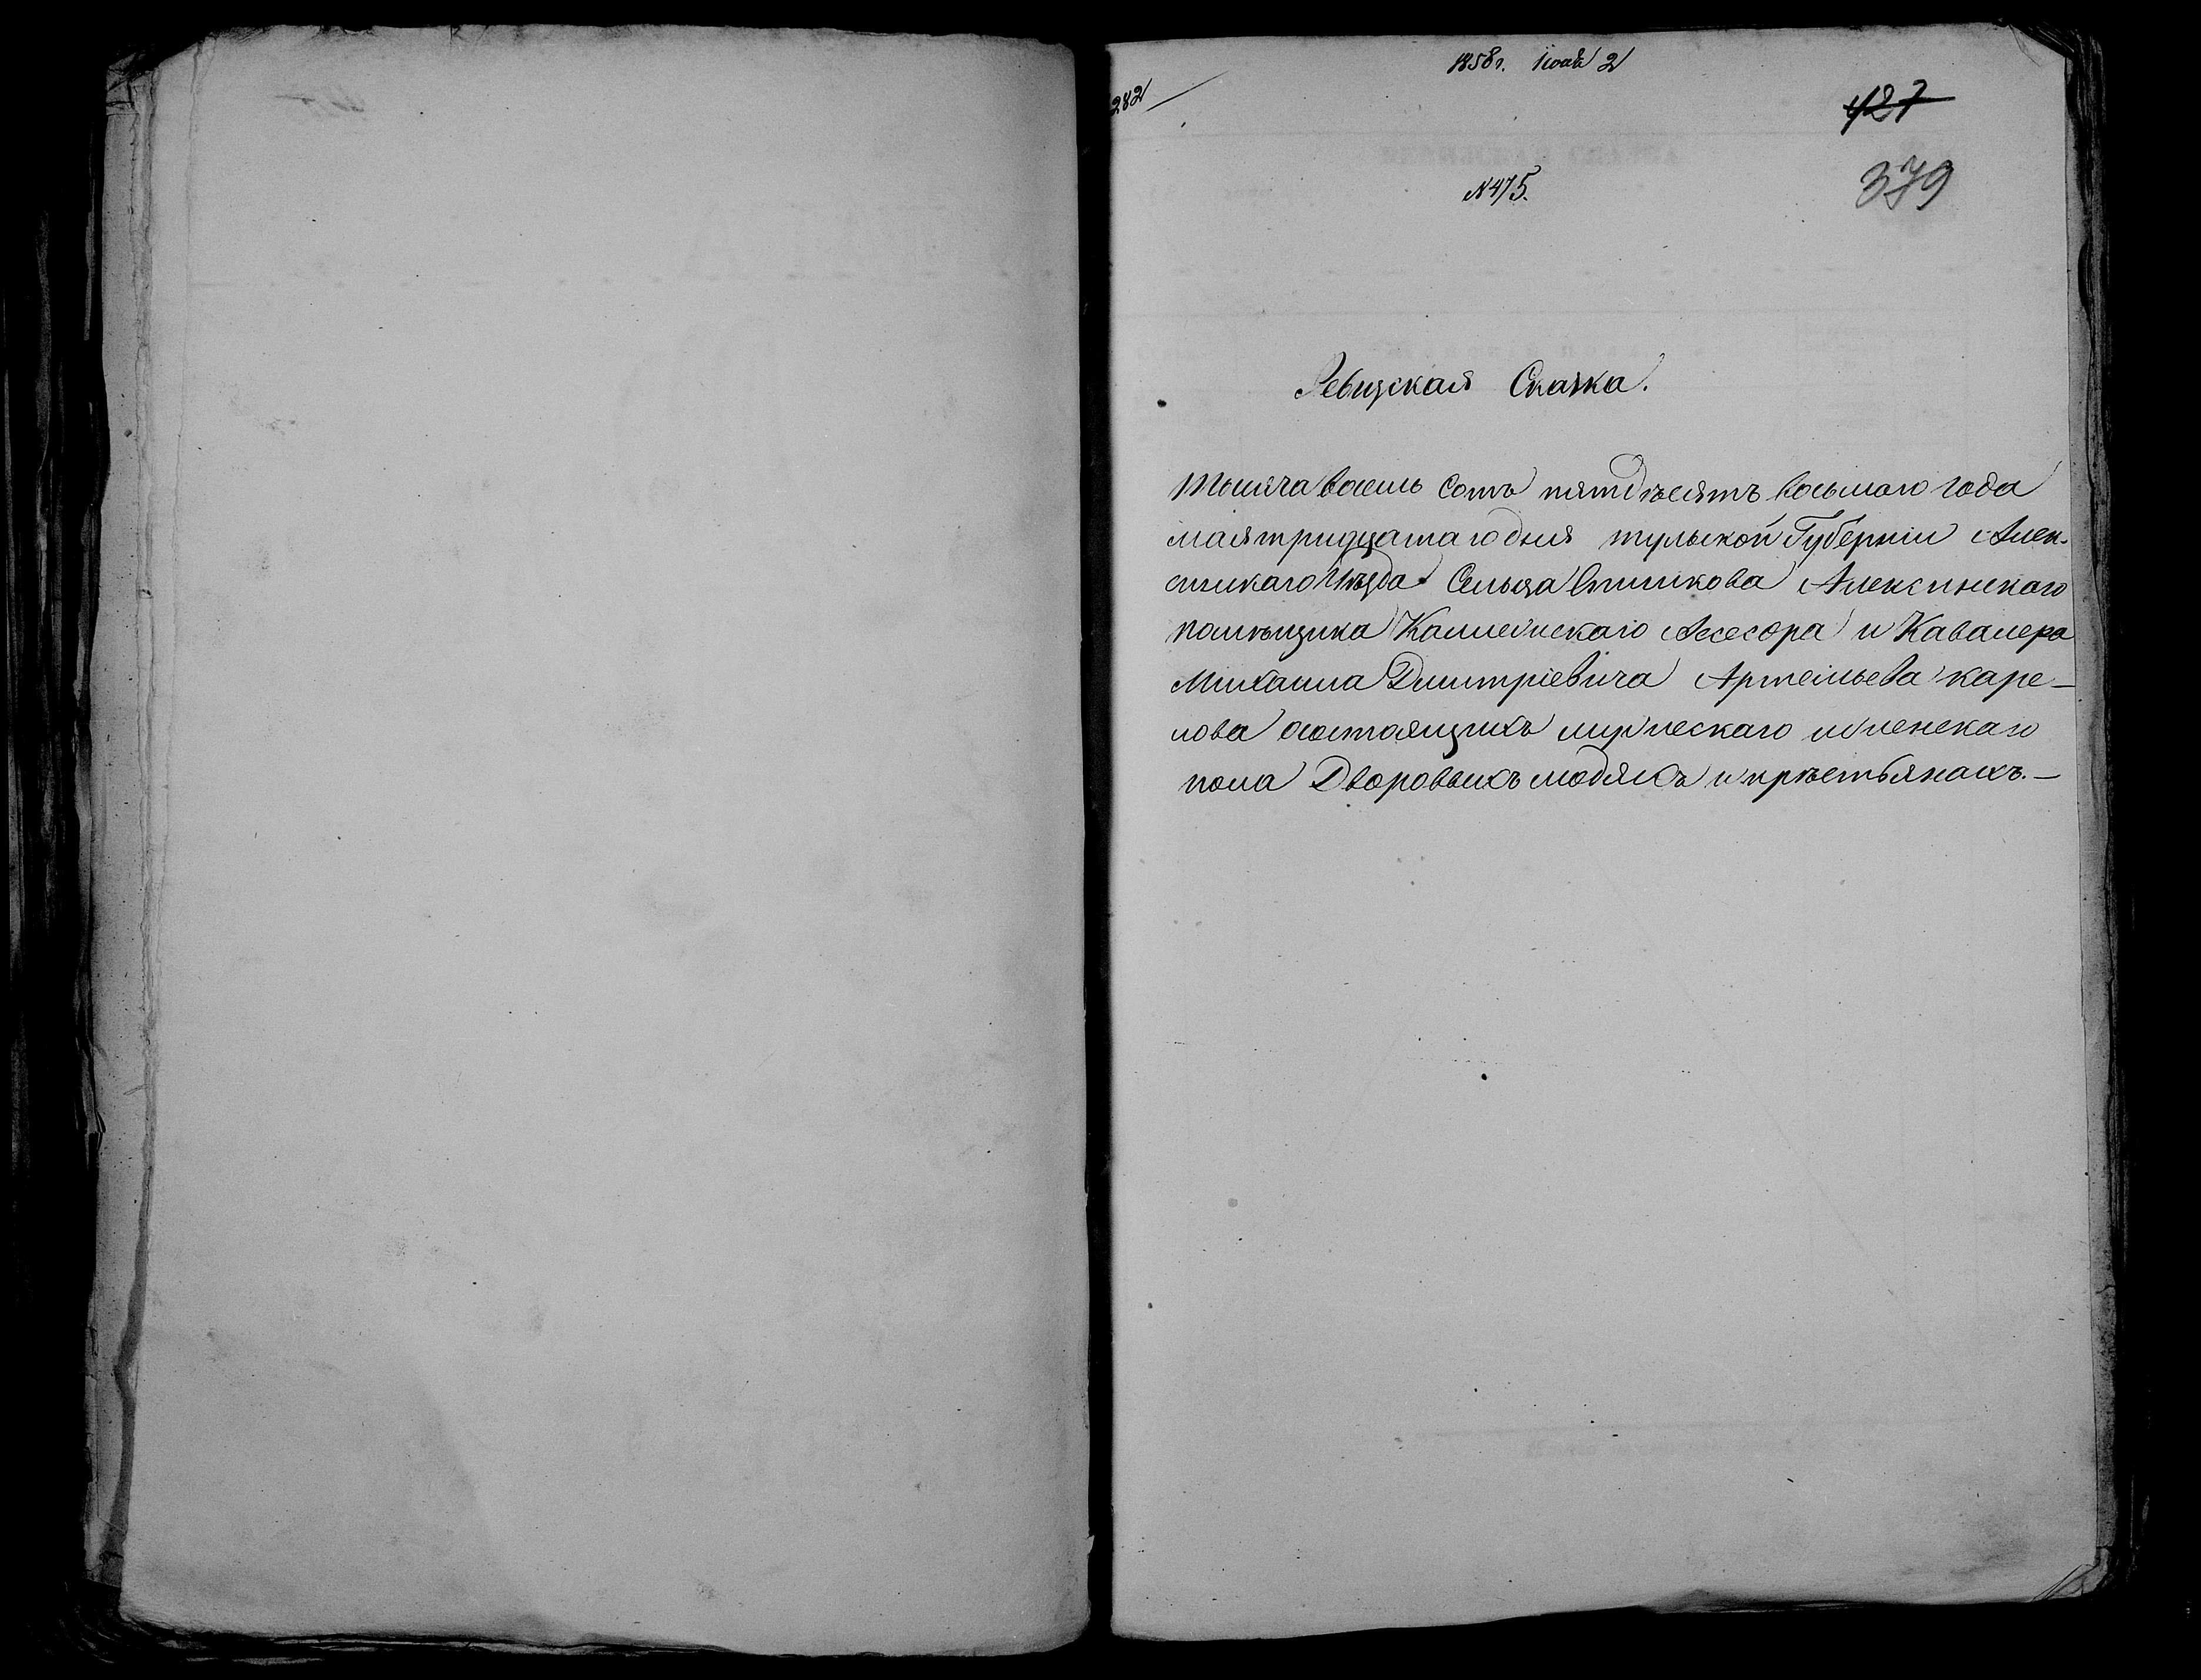 1858 г. Iюня 2
282
427
№ 475.
379
Ревизская Сказка.
Тысяча восемь сотъ пятдѣсятъ восьмаго года
мая тридцатаго дня тульской Губернiи Алек-
синскаго Уѣзда Сельца Алексинскаго
помѣщика Коллежскаго Асесора и Кавалера
Михаила Дмитрiевича Артемьева каре-
лова о состоящихъ мужескаго и женскаго
пола Дворовыхъ людяхъ и крѣстьянахъ. —